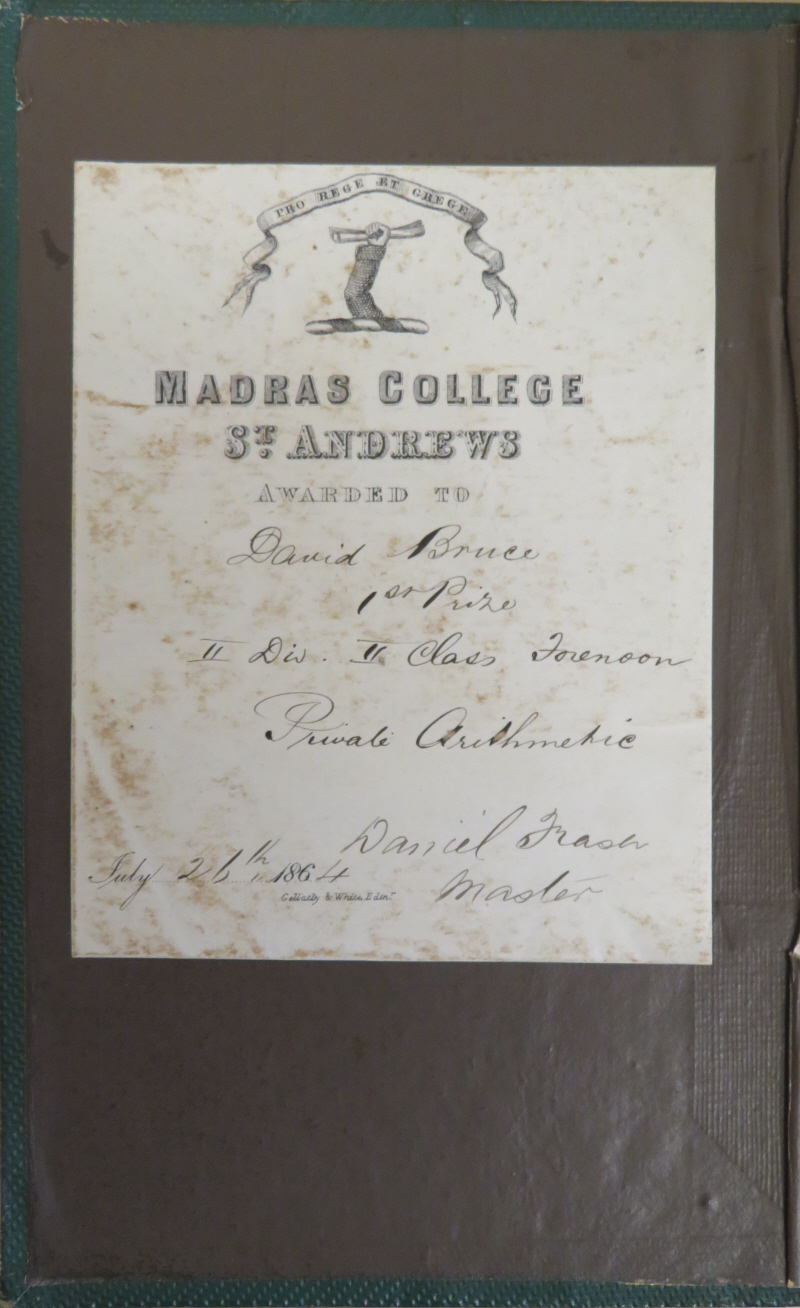 PRO REGE ET GREGE
MADRAS COLLEGE
ST. ANDREWS
AWARDED TO
David Bruce
1st Prize
II Div. II Class Forenoon
Private Arithmetic
Daniel Fraser
July 26th 1864
Master
Gellatly & White, Edinr.